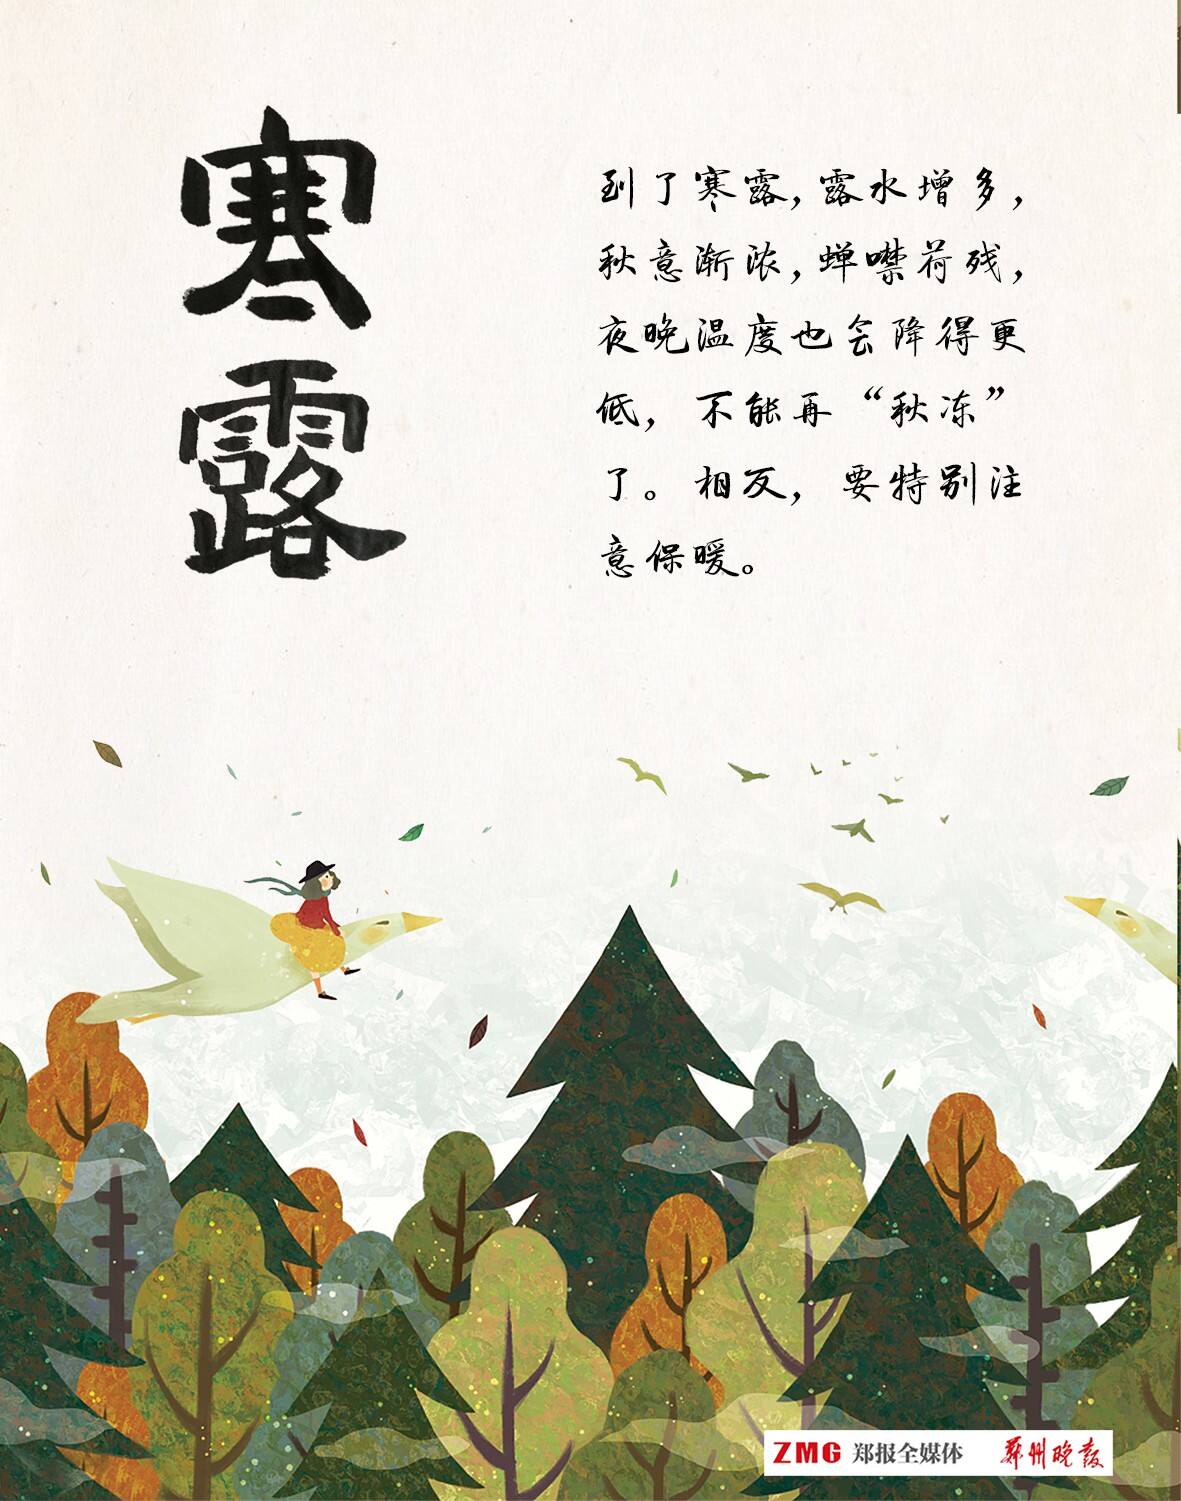 寒露
到了寒露，露水增多，
秋意渐浓，蝉噤荷残，
夜晚温度也会降得更
低，不能再“秋冻”
了。相反，要特别注
意保暖。
ZMG 郑报全媒体 郑州晚报